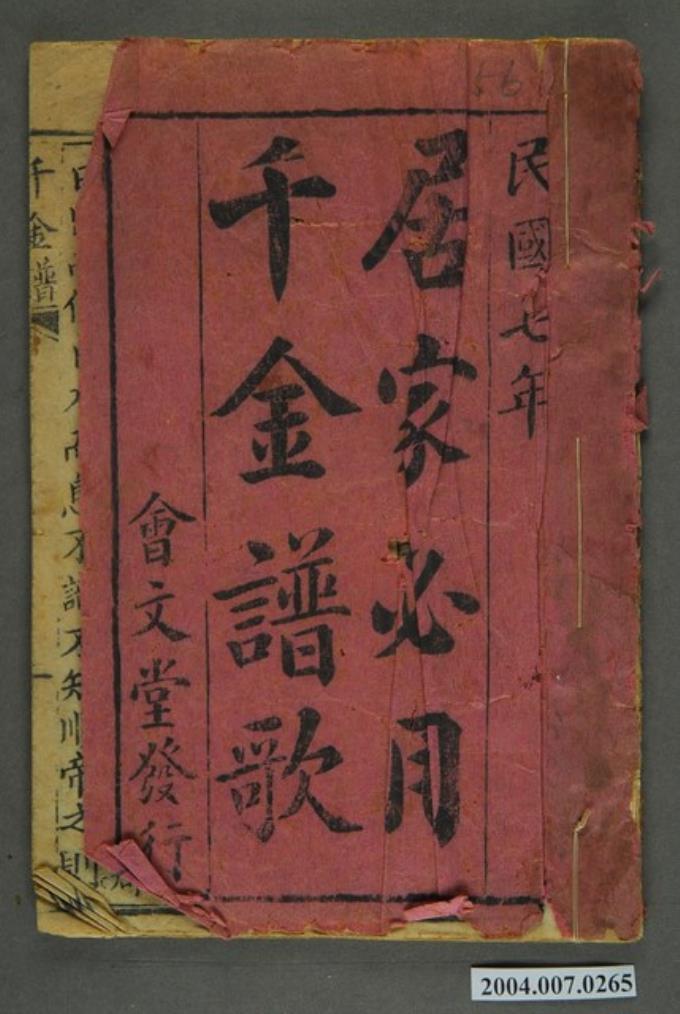 56
民國七年
居家必用
千金譜歌
會文堂發行
不知順帝之則
千金譜
2004.007.0265